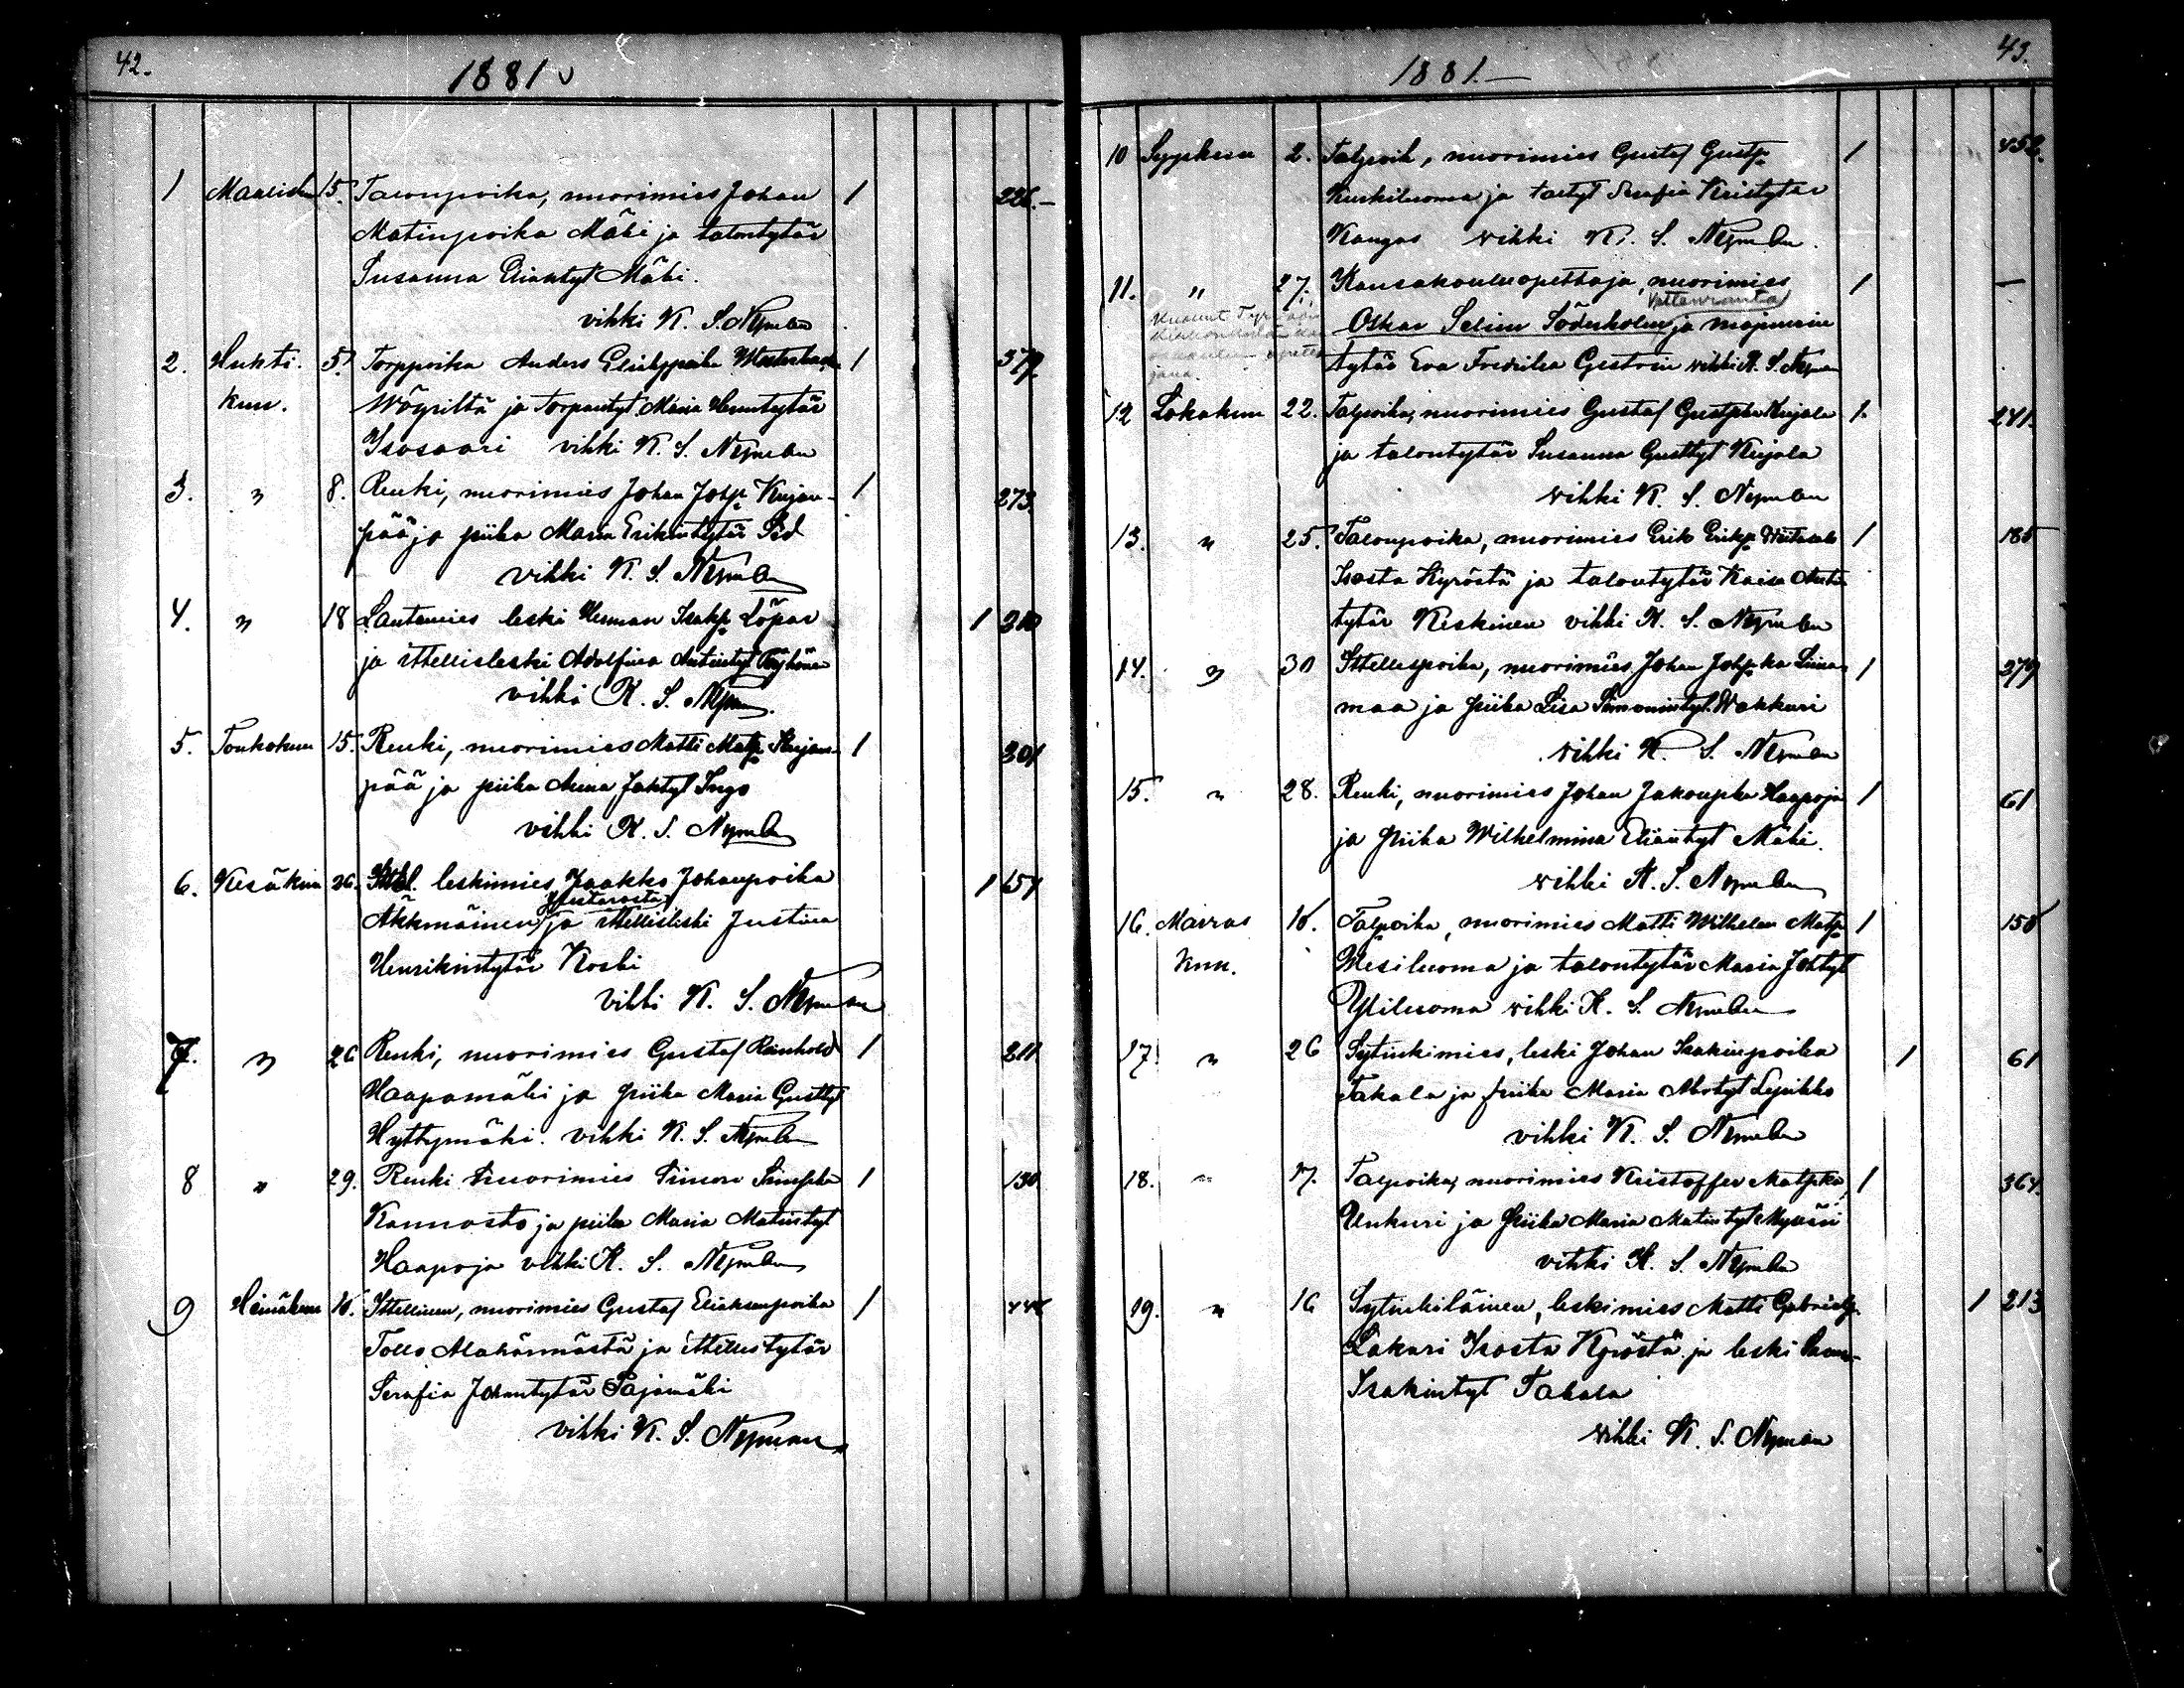 42.
1881
1 Maalisk 15. Talonpoika, nuorimies Johan 1 226.-
Matinpoika Mäki ja talontytär
Susanna Eliantyt Mäki.
vihki K. S. Nyman
2. Huhti- 5. Torppoika Anders 1 379.
kuu. Wöyriltä ja Torpantyt Maria Henntytär
Isosaari vihki K. S. Nyman
3. " 8. Renki, nuorimies Johan Johp Kujan- 1 273.
pää ja piika Maria Erikintytär
vihki K. S. Nyman
4. " 18 Lautamies leski Herman Isakp Löpar 1 210
ja ittellisleski Adolfina Antintyt
vihki K. S. Nyman.
5. Toukokuu 15. Renki, nuorimies Matti Matp Kujan- 1 301
pää ja piika Anna Jaktyt Ingo
vihki K. S. Nyman
6. Kesäkuu 26. Ittel. leskimies Jaakko Johanpoika 1 657
Äkkmäinen ja ittellisleski Justina
Henrikintytär Koski
vihki K. S. Nyman
7. " 26 Renki, nuorimies Gustaf Reinhold 1 211
Haapamäki ja piika Maria Gusttyt
Hyttymäki. vihki K. S. Nyman
8 " 29. Renki nuorimies Simon Simpka 1 130
Kannosto ja piika Maria Matintyt
Haapoja vihki K. S. Nyman
9 Heinäkuu 16. Ittellinen, nuorimies Gustaf Eliaksenpoika 1 446
Tollo Alahärmästä ja ittellistytär
Serafia Johantytär Pajamäki
vihki K. S. Nyman
43.
1881.-
10 Syyskuu 2. Talpoik, nuorimies Gustaf Gustp 1 452.
Kuskiluoma ja taltyt Serafia Kristytär
Kangas vihki K. S. Nyman.
11. " 27. Kansakoulunopettaja, nuorimies 1 —
Oskar Selim Söderholm ja majurin
tytär Eva Fredrika Gestrin vihki K. S. Nyman
12 Lokakuu 22. Talpoika, nuorimies Gustaf Gustpka Kujala 1. 241.
ja talontytär Susanna Gusttyt Kujala
vihki K. S. Nyman
13. " 25. Talonpoika, nuorimies Erik Erikp 1 185
Isosta Kyröstä ja talontytär Kaisa Antin
tytär Keskinen vihki K. S. Nyman
14. " 30 Ittellispoika, nuorimies Johan Johpka Liina- 1 279
maa ja piika Lisa Simonintyt. Wakkuri
vihki K. S. Nyman
15. " 28. Renki, nuorimies Johan Jakoupka Haapoja 1 61
ja piika Wilhelmina Eliantyt Mäki.
vihki K. S. Nyman
16. Marras 16. Talpoika, nuorimies Matti Wilhelm Matp 1 156
kuu. Wesiluoma ja talontytär Maria Johtyt
Yliluoma vihki K. S. Nyman
17. " 26 Sytinkimies, leski Johan Isakinpoika 1 61
Takala ja piika Maria Abrtyt Lepikko
vihki K. S. Nyman
18. " 17. Talpoika, nuorimies Kristoffer Matpka 1 364.
Unkuri ja piika Maria Matintyt Myväri
vihki K. S. Nyman
19. " 16 Sytinkiläinen, leskimies Matti Gabrielp. 1 213
Lakari Isosta Kyröstä ja leski
Isakintyt Takala
vihki K. S. Nyman